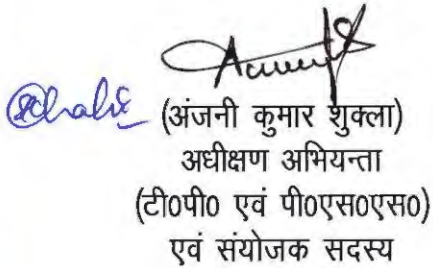 (अंजनी कुमार शुक्ला)
अधीक्षण अभियन्ता
(टी0पी0 एवं पी0एस0एस0)
एवं संयोजक सदस्य